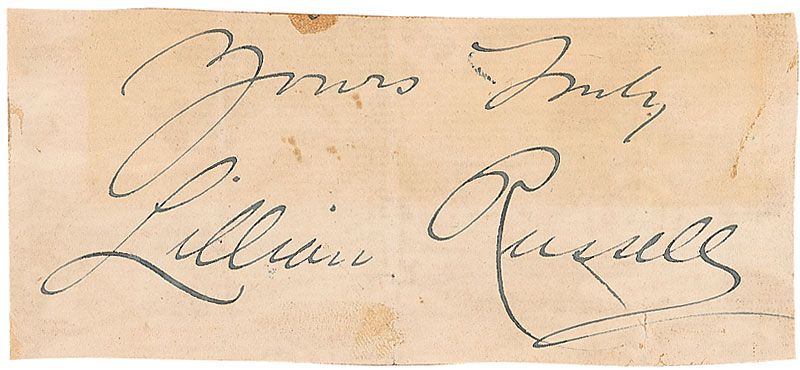 Yours Truly
Lillian Russell